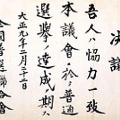 決議
吾人ハ協力一致
本議會ニ於テ普通
選擧ノ達成ヲ期ス
大正九年二月二十二日
全國普選聯合會